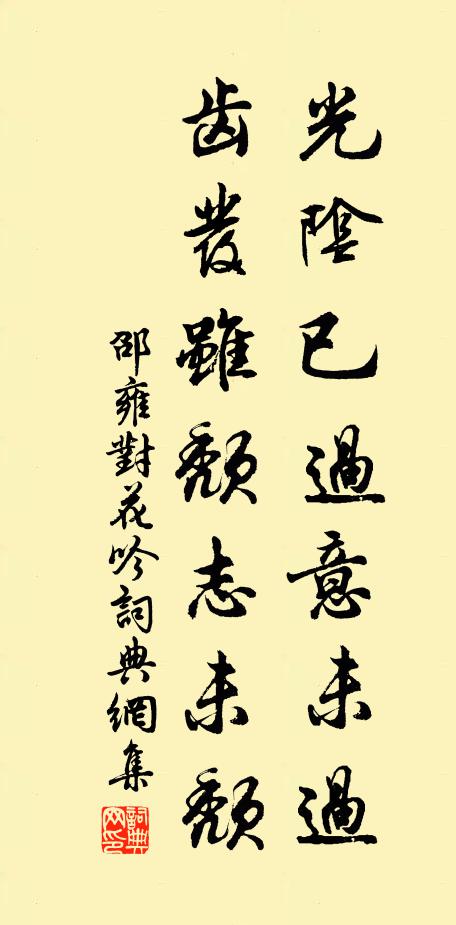 光陰已過意未過
齒發雖頹志未頹
邵雍對花吟詞典網集
詞典网印